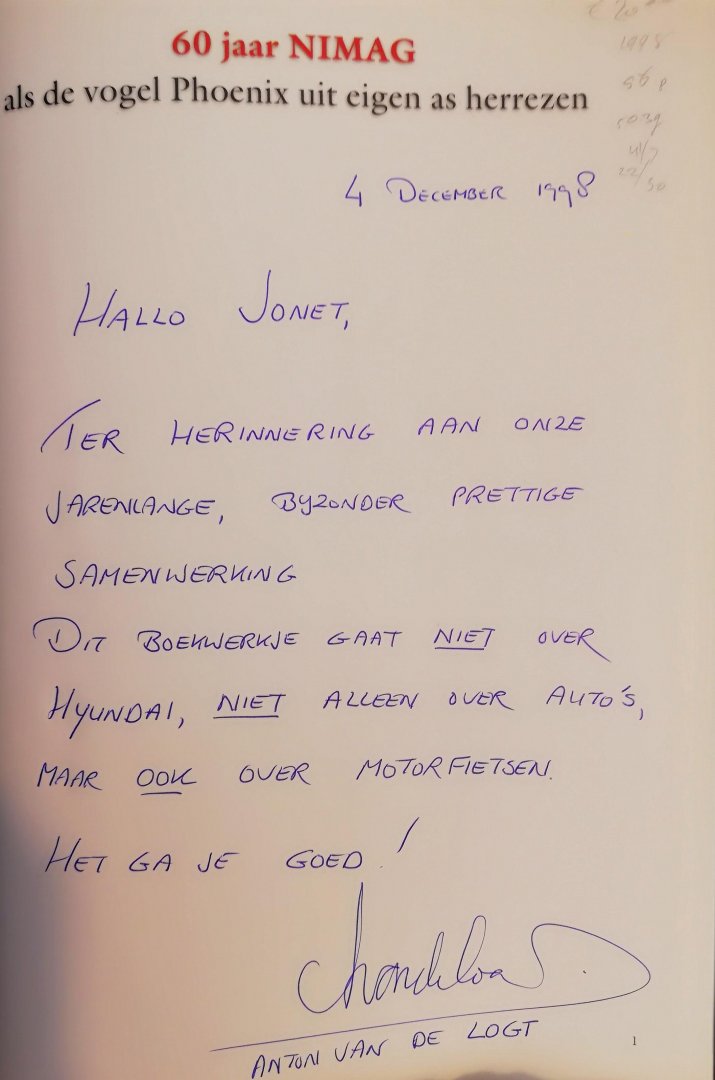 60 jaar NIMAG
als de vogel Phoenix uit eigen as herrezen
1998
56 p
4 DECEMBER 1998
HALLO JONET,
TER HERINNERING AAN ONZE
JARENLANGE, BYZONDER PRETTIGE
SAMENWERKING
DIT BOEKWERKJE GAAT NIET OVER
HYUNDAI, NIET ALLEEN OVER AUTO'S,
MAAR OOK OVER MOTORFIETSEN.
HET GA JE GOED!
ANTON VAN DE LOGT
1